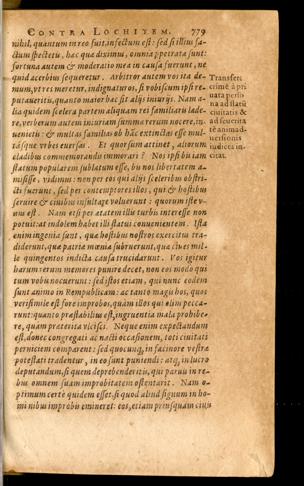 CONTRA LOCHITEM. 779
nihil, quantum in reo fuit, infectum est: sed si illius fa-
ctum spectetis, hac qua diximus, omnia perpetrata sunt:
fortuna autem & moderatio mea in causa fuerunt, ne
quid acerbius sequeretur. Arbitror autem vos ita de-
mum, vt res meretur, indignaturos, si vobiscum ipsi re-
putaueritis, quanto maior hac sit alijs iniurijs. Nam a-
lia quidem scelera partem aliquam rei familiaris læde-
re, verberum autem iniuriam summa rerum nocere, in-
uenietis: & multas familias ob hãc extinctas esse mul-
tásque vrbes euersas. Et quorsum attinet, aliorum
cladibus commemorandis immorari? Nos ipsi bis iam
statum popularem sublatum esse, bis nos libertatem a-
misisse, vidimus: non per eos qui alijs sceleribus obstri-
cti fuerunt, sed per contemptores illos, qui & hostibus
seruire & ciuibus insultare voluerunt: quorum iste v-
nus est. Nam etsi per ætatem illi turbis interesse non
potuit: at indolem habet illi statui conuenientem. Ista
enim ingenia sunt, quæ hostibus nostros exercitus tra-
diderunt, quæ patriæ mœnia subruerunt, quæ ciues mil-
le quingentos indicta causa trucidarunt. Vos igitur
harum rerum memores punire decet, non eos modo qui
tum vobis nocuerunt: sed istos etiam, qui nunc eodem
sunt animo in Rempublicam: ac tanto magis hos, quos
verisimile est fore improbos, quàm illos qui olim pecca-
runt: quanto præstabilius est, ingruentia mala prohibe-
re, quam præterita vlcisci. Neque enim expectandum
est, donec congregati ac nacti occasionem, toti ciuitati
perniciem comparent: sed quocunque in facinore vestræ
potestati tradentur, in eo sunt puniendi: atque in lucro
deputandum, si quem deprehenderitis, qui paruis in re-
bus omnem suam improbitatem ostentarit. Nam o-
ptimum certe quidem esset, si quod aliud signum in ho-
minibus improbis emineret: eos, etiam priusquam ciuis
Transfert
crimē à pri
uata perso-
na ad statũ
ciuitatis &